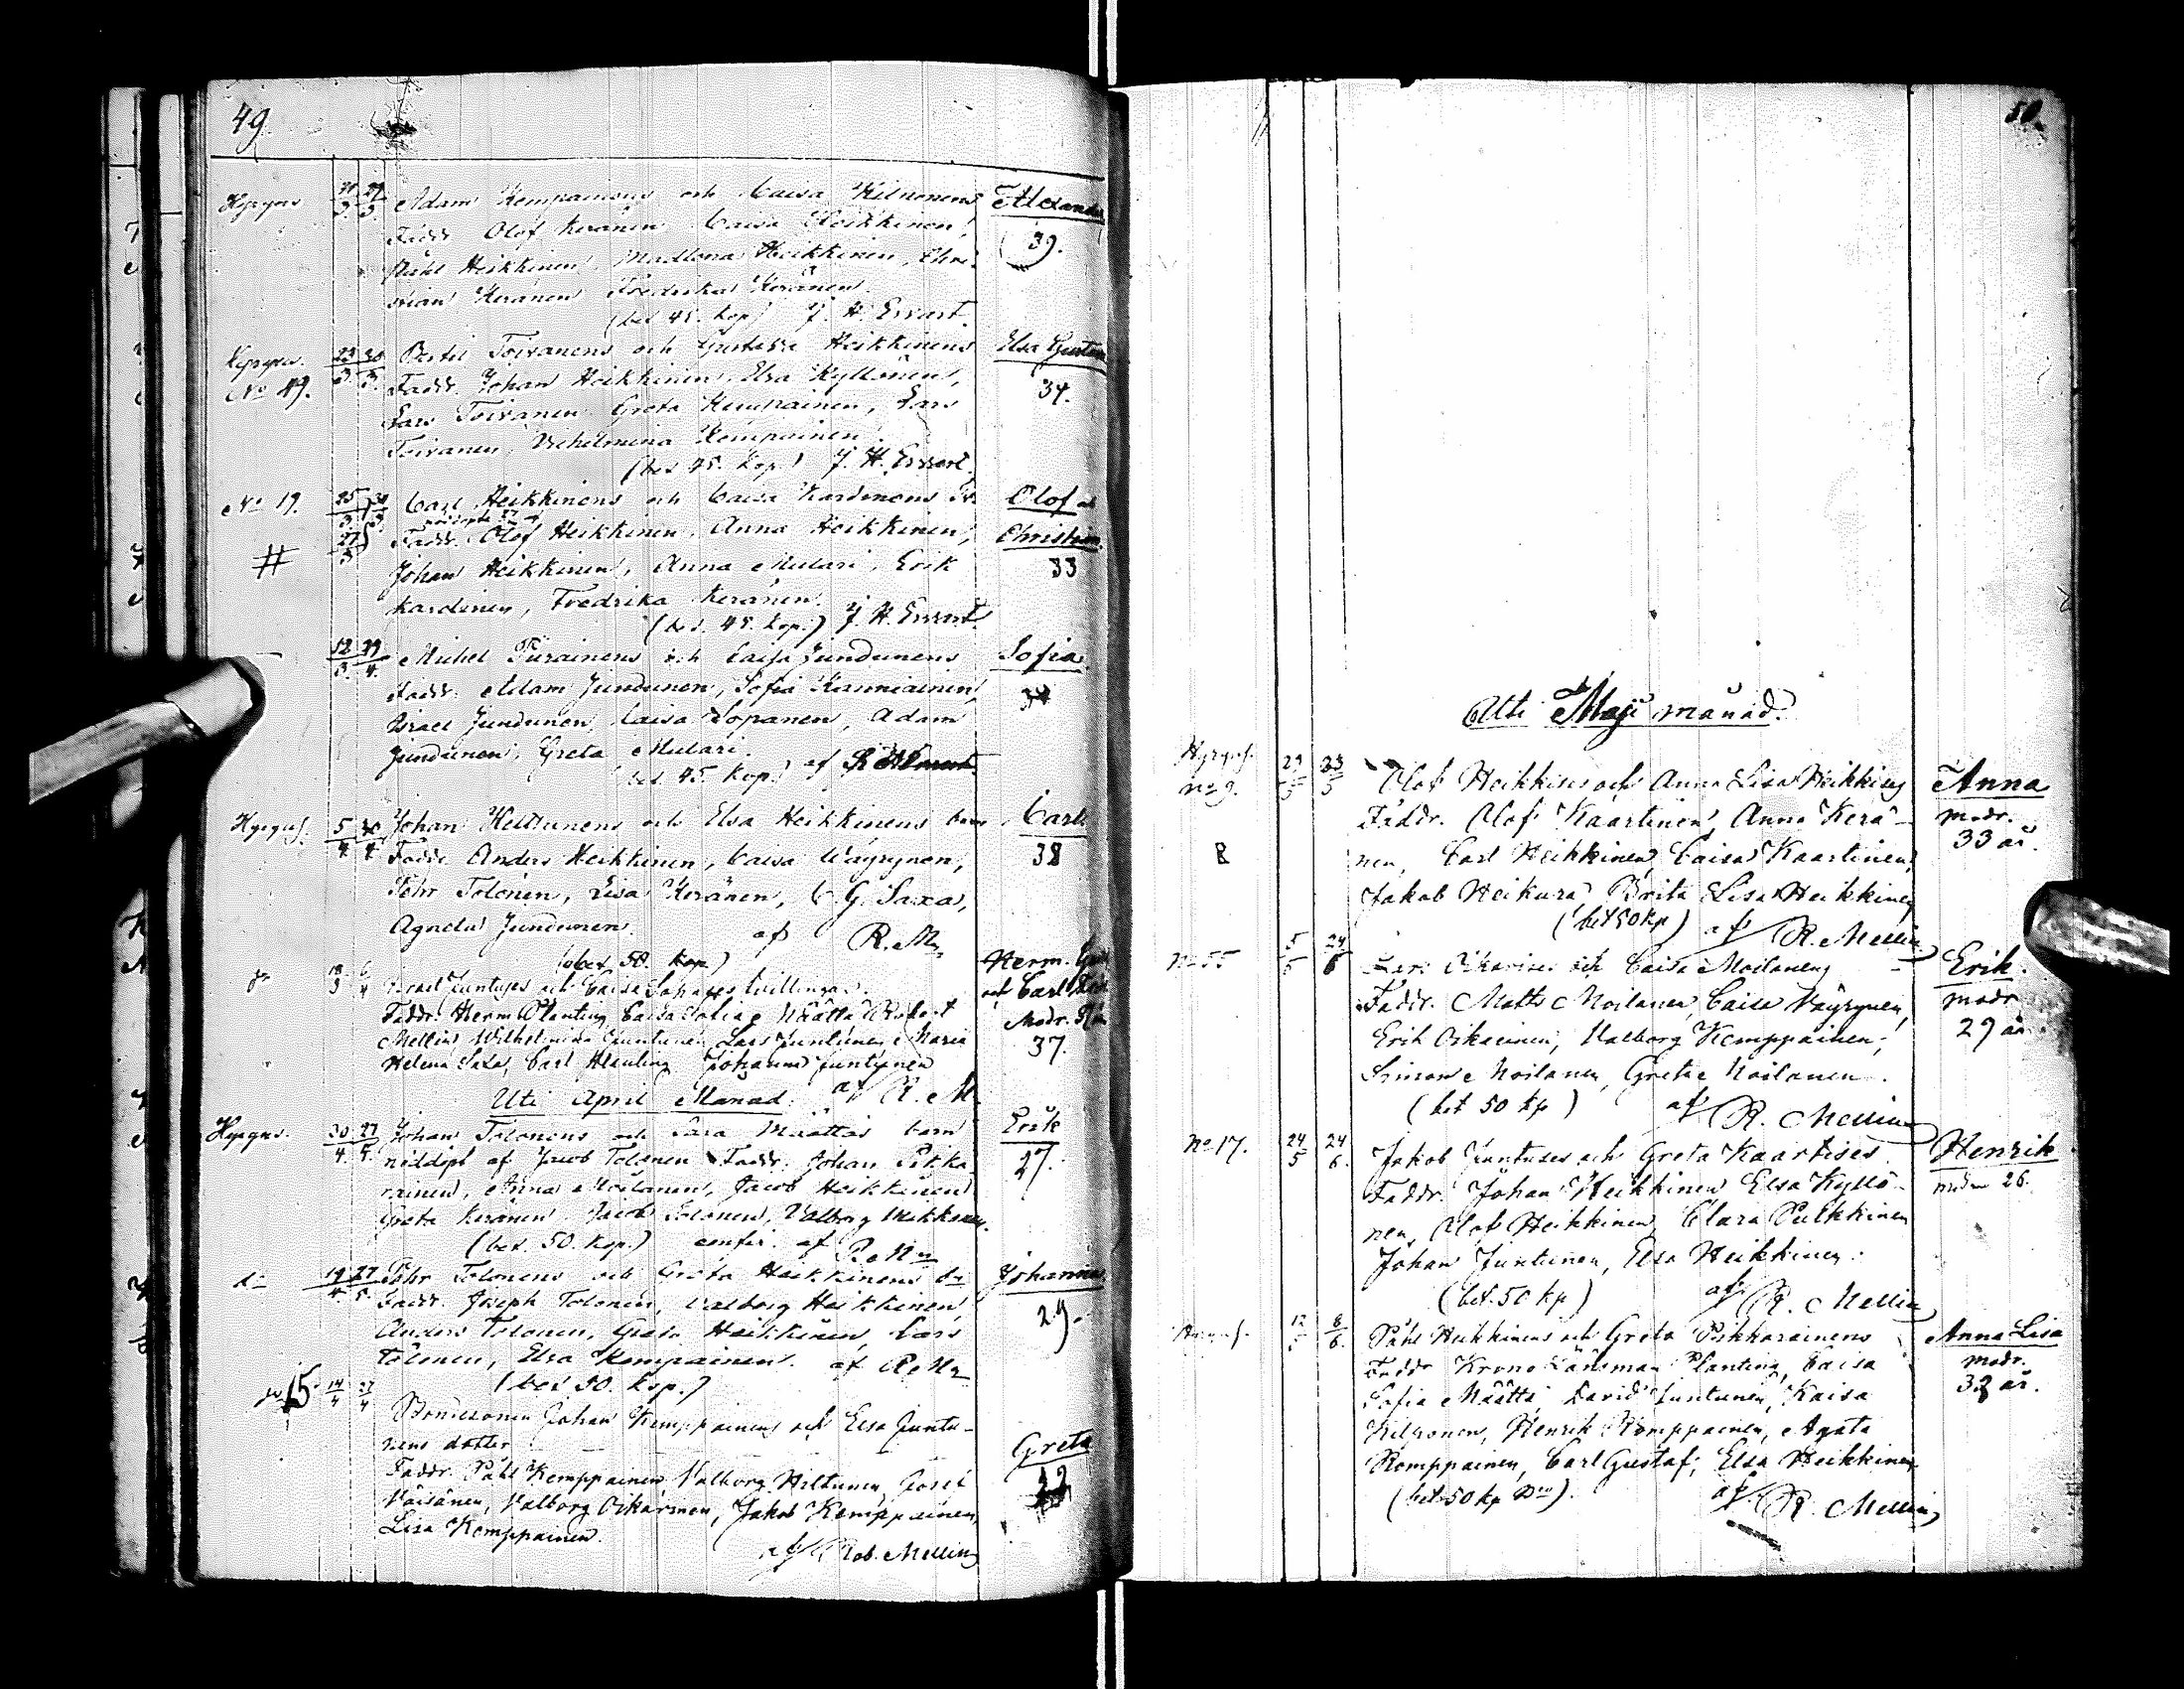 49
Hyryns. 21/3. 29/3. Adam Kempainens och Caisa Kilponens Alexander
Faddr. Olof Keränen Caisa Heikkinen, 39.
Påhl Heikkinen, Madlena Heikkinen, Chri-
stian Keränen Fredrika Keränen.
(bet. 45. kop.) J. H. Ervast.
Hyryns. 23/3. 30/3. Bertil Toivanens och Gustava Heikkinens Elsa Gustava
No 49. Faddr. Johan Heikkinen, Elsa Kyllönen, 34.
Lars Toivanen Greta Kempainen, Lars
Toivanen, Vilhelmina Kempainen.
(bet. 45. kop.) J. H. Ervast.
No 19. 25/3. 30/3. Carl Heikkinens och Caisa Kardinens Olof och
27/3 Faddr. Olof Heikkinen, Anna Heikkinen, Christian.
# Johan Heikkinen, Anna Mulari, Erik 33
Kardinen, Fredrika Keränen.
(bet. 45. kop.) J. H. Ervast.
12/3. 29/4. Michel Turainens och Caisa Jundunens Sofia.
Faddr. Adam Jundunen, Sofia Kanniainen, 34
Israel Jundunen, Caisa Sopanen, Adam
Jundunen, Greta Mulari.
(bet. 45. kop.) af
Hyrynsf. 5/4. 30/4. Johan Heltunens och Elsa Heikkinens barn Carl
Faddr. Anders Heikkinen, Caisa Wäyrynen, 38
Pehr Tolonen, Lisa Keränen, C. G. Saxa,
Agneta Jundunen. af R. Mn
(bet. 50. kop.)
18/3 6/4 Israel Juntuses och Caisa Sopases tvillingar. Herm.
Faddr. Herm Planting Caisa Sofia Määttä Robert och Carl
Mellin Wilhelmina Juntunen Lars Juntunen Maria Modr.
Helena Saxa, Carl Planting Johanna Juntunen 37.
Uti April Månad. af R. M.
Hyryns. 20/4. 27/5. Johan Tolonens och Sara Määttäs barn Erik
nöddöpt af Jacob Tolonen Faddr. Johan Pikka- 27.
rainen, Anna Moilanen, Jacob Heikkinen
Greta Keränen Jacob Tolonen, Valborg Mikkonen.
(bet. 50. kop.) confir. af R. Mn
do 19/4. 27/5. Pehr Tolonens och Greta Heikkinens Johanna
Faddr. Joseph Tolonen, Valborg Heikkinen 29.
Anders Tolonen, Greta Heikkinen, Lars
Tolonen, Elsa Kempainen. af R. Mn
(bet 50. kop.)
No 15 14/4 27/4 Bondesonen Johan Kemppainens och Elsa Juntu-
nens dotter Greta
Faddr. Påhl Kemppainen Valborg Hiltunen, Josef 32
Väisänen, Valborg Oikarinen, Jakob Kemppainen,
Lisa Kemppainen.
af Rob. Mellin
50.
Uti Maji månad.
Hyrynsf.
No 9. 23/5 Olof Heikkises och Anna Lisa Heikkises Anna
Faddr. Olof Kaartinen, Anna Kerä- modr.
nen, Carl Heikkinen, Caisa Kaartinen, 33 år.
Jakob Heikura, Brita Lisa Heikkinen
(bet 50 kp) af R. Mellin
No 55 5/5 24/6 Lars Oikarises och Caisa Moilanens Erik.
Faddr. Matts Moilanen, Caisa Väyrynen, modr
Erik Oikarinen, Valborg Kemppainen, 29 år.
Simon Moilanen, Greta Moilanen.
(bet 50 kp) af R. Mellin
No 17. 24/5 24/6. Jakob Juntuses och Greta Kaartises Henrik
Faddr. Johan Heikkinen Elsa Kyllö- modr 26.
nen, Olof Heikkinen, Clara Pulkkinen
Johan Juntunen, Elsa Heikkinen.
(bet. 50 kp) af R. Mellin
12/5 8/6. Påhl Heikkinens och Greta Pikkarainens Anna Lisa
Faddr Krono Länsman Planting, Caisa modr.
Sofia Määttä, David Juntunen, Kaisa 32 år.
Kilponen, Henrik Komppainen, Agata
Komppainen, Carl Gustaf, Elsa Heikkinen
(bet 50 kp). af R. Mellin